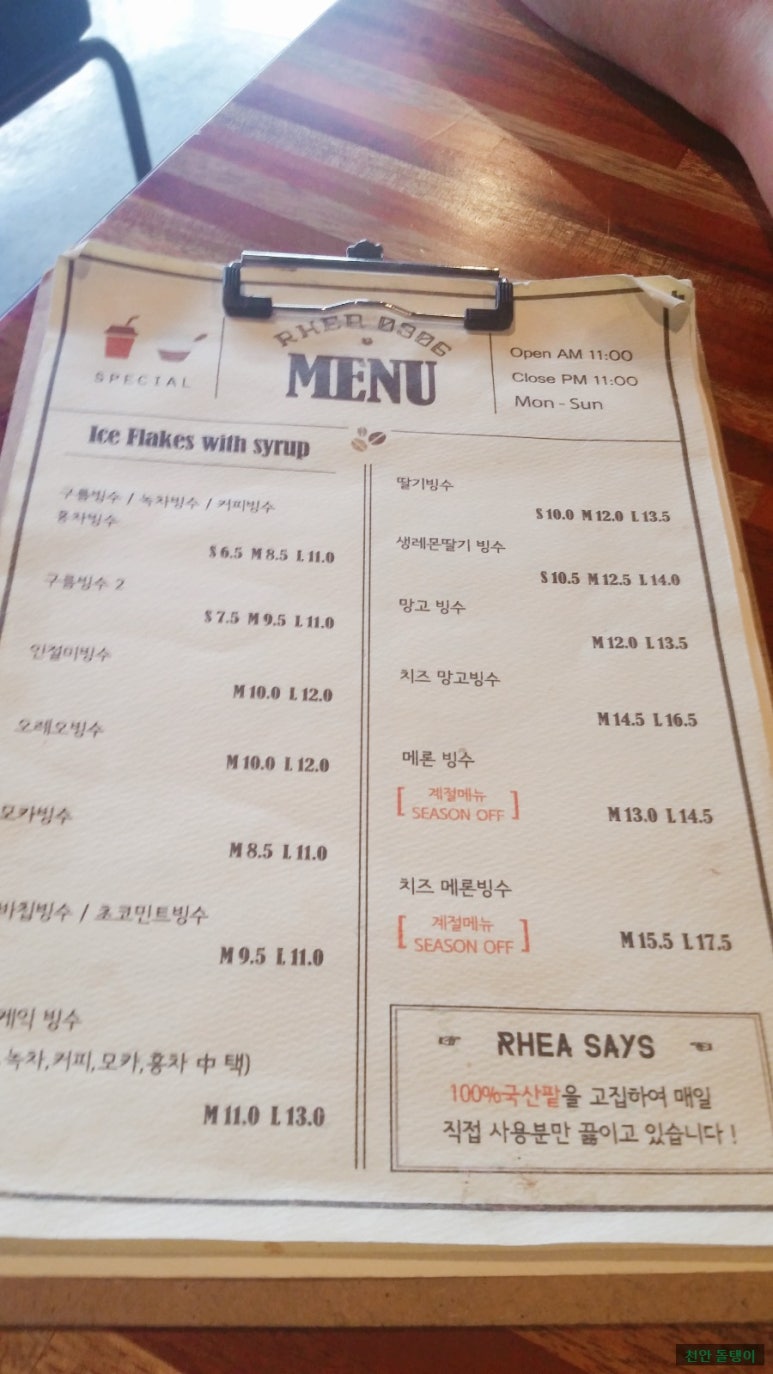 SPECIAL
RHEA 0306
MENU
Open AM 11:00
Close PM 11:00
Mon - Sun
Ice Flakes with syrup
구름빙수 / 녹차빙수 / 커피빙수
홍차빙수
S 6.5 M 8.5 L 11.0
구름빙수 2
S 7.5 M 9.5 L 11.0
인절미빙수
M 10.0 L 12.0
오레오빙수
M 10.0 L 12.0
모카빙수
M 8.5 L 11.0
바칩빙수 / 초코민트빙수
M 9.5 L 11.0
케익 빙수
녹차,커피,모카,홍차 中 택)
M 11.0 L 13.0
딸기빙수
S 10.0 M 12.0 L 13.5
생레몬딸기 빙수
S 10.5 M 12.5 L 14.0
망고 빙수
M 12.0 L 13.5
치즈 망고빙수
M 14.5 L 16.5
메론 빙수
[ 계절메뉴
SEASON OFF ]
M 13.0 L 14.5
치즈 메론빙수
[ 계절메뉴
SEASON OFF ]
M 15.5 L 17.5
☞ RHEA SAYS ☜
100%국산팥을 고집하여 매일
직접 사용분만 끓이고 있습니다 !
천안 돌탱이